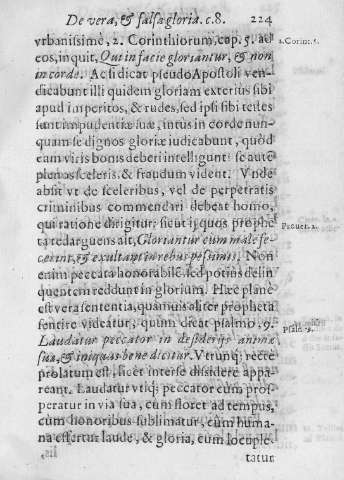 De vera, & falsa gloria. c. 8. 224
vrbanissimè, 2. Corinthiorum, cap. 5. ad
eos, inquit, Qui in facie gloriantur, & non
in corde. Ac si dicat pseudo Apostoli ven-
dicabunt illi quidem gloriam exterius sibi
apud imperitos, & rudes, sed ipsi sibi testes
sunt impudentiæ suæ, intùs in corde nun-
quam se dignos gloriæ iudicabunt, quòd
eam viris bonis deberi intelligunt: se autē
plenos sceleris, & fraudum vident. Vnde
absit vt de sceleribus, vel de perpetratis
criminibus commendari debeat homo,
qui ratione dirigitur: sicut ij quos prophe
ta redarguens ait, Gloriantur cum male fe-
cerint, & exultant in rebus pessimis. Non
enim peccata honorabilē, sed potius delin
quentem reddunt in glorium. Hæc planè
est vera sententia, quamuis aliter propheta
sentire videatur, quum dicat psalmo. 9.
Laudatur peccator in desiderijs animæ
suæ, & iniquus bene dicitur. Vtrunq; rectè
prolatum est, licet interse dissidere appa-
reant. Laudatur vtiq; peccator cum pros-
peratur in via sua, cum floret ad tempus,
cum honoribus sublimatur, cum huma-
na effertur laude, & gloria, cum locuple-
tatur
2. Corin. 5.
Prouer. 2.
Psal. 9.